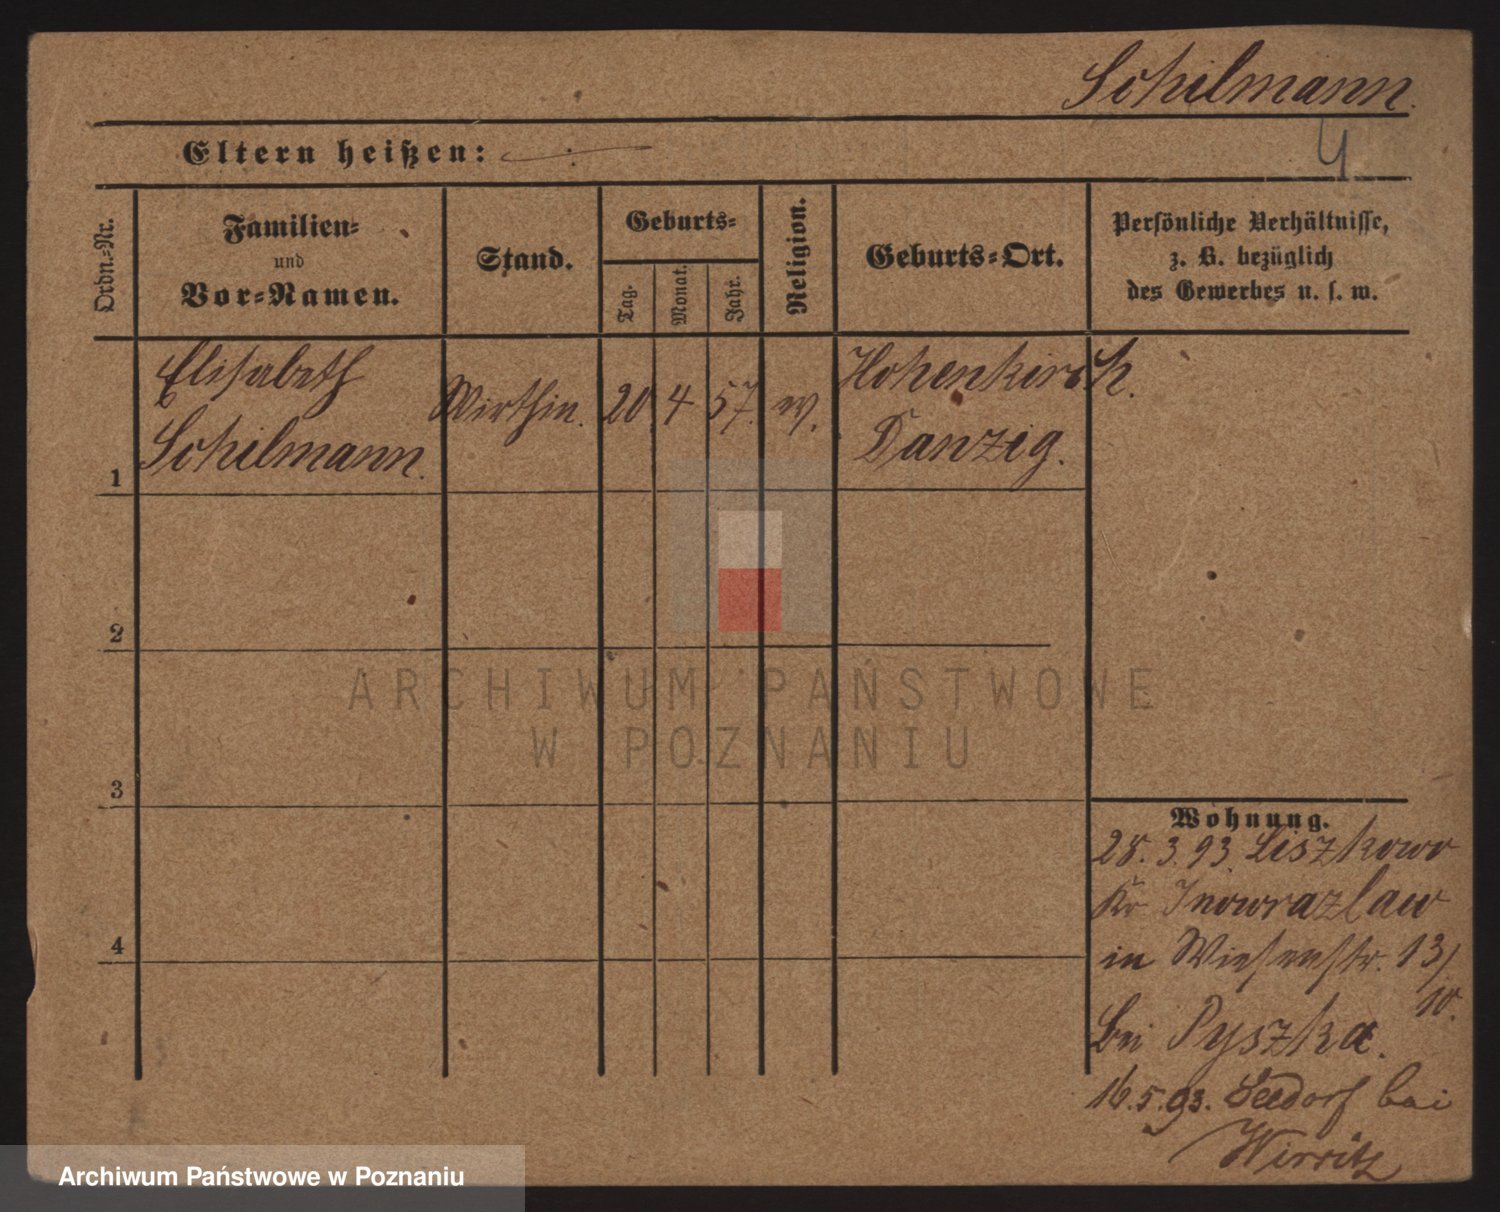 Schilmann.
4
Eltern heißen:
Ordn.-Nr.
Familien-
und
Vor-Namen.
Stand.
Geburts-
Tag.
Monat.
Jahr.
Religion.
Geburts-Ort.
Persönliche Verhältnisse,
z. B. bezüglich
des Gewerbes u. s. w.
1
Elisabeth
Schilmann.
Wirthin.
20.
4
57.
ev.
Hohenkirch.
Danzig.
2
3
4
Wohnung.
28.3.93. Liszkowo
Kr Inowrazlaw
in Wiesenstr. 13/
10.
bei Pyszka.
16.5.93. Seedorf bei
Wirsitz
ARCHIWUM PAŃSTWOWE
W POZNANIU
Archiwum Państwowe w Poznaniu